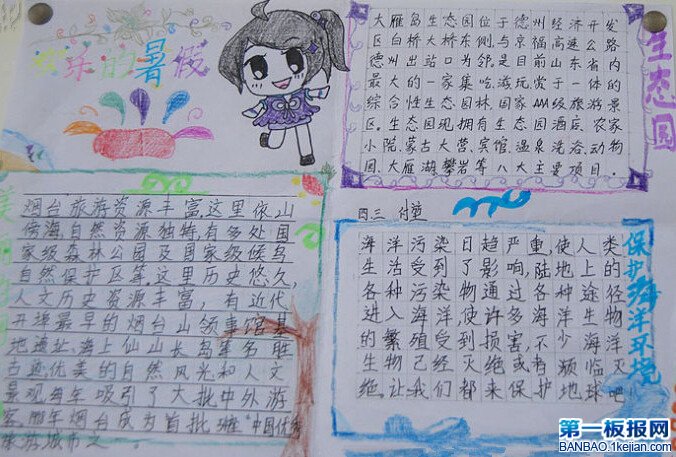 快乐的暑假
大雁岛生态园位于德州经济开发
区白桥大桥东侧,与京福高速公路
德州出站口为邻,是目前山东省内
最大的一家集吃游玩赏于一体的
综合性生态园林,国家AAA级旅游景
区。生态园现拥有生态园酒店、农家
小院、蒙古大营、宾馆、温泉洗浴、动物
园、大雁湖、攀岩等八大主要项目.
生态园
烟台旅游资源丰富,这里依山
傍海,自然资源独特,有多处国
家级森林公园及国家级候鸟
自然保护区等.这里历史悠久,
人文历史资源丰富，有近代
开埠最早的烟台山领事馆基
地遗址,海上仙山长岛等名胜
古迹,优美的自然风光和人文
景观每年吸引了大批中外游
客.那年烟台成为首批"中国优秀
旅游城市之
四三
海洋污染日趋严重,使人类
生活受到了影响,陆地上的
各种污染物通过各种途径
进入海洋,使许多海洋生物
的繁殖受到损害,不少海洋
生物已经灭绝或者频临灭
绝.让我们都来保护地球吧!
保护海洋环境
第一板报网
BANBAO.1kejian.com